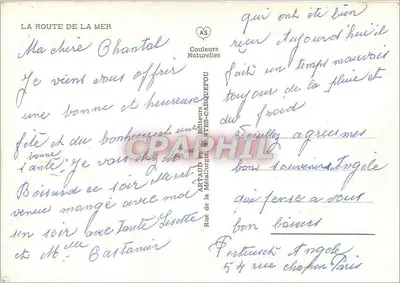 LA ROUTE DE LA MER
AS
Couleurs
Naturelles
Ma chère Chantal
Je viens vous offrir
une bonne et heureuse
fête et du bonheur et une
bonne
santé Je vais chez M
ce soir
venue mangé avec moi
un soir avec tante Lisette
et Mme Castanier
CPARAMA.COM
ARTAUD Editeurs
Rue de la Métallurgie, NANTES-CARQUEFOU
qui ont été bien
reçu Aujourd'hui il
fait un temps mauvais
toujours de la pluie et
du froid
agrées mes
bons souvenirs Angele
qui pense a vous
bon baisers
Angele
54 rue Paris